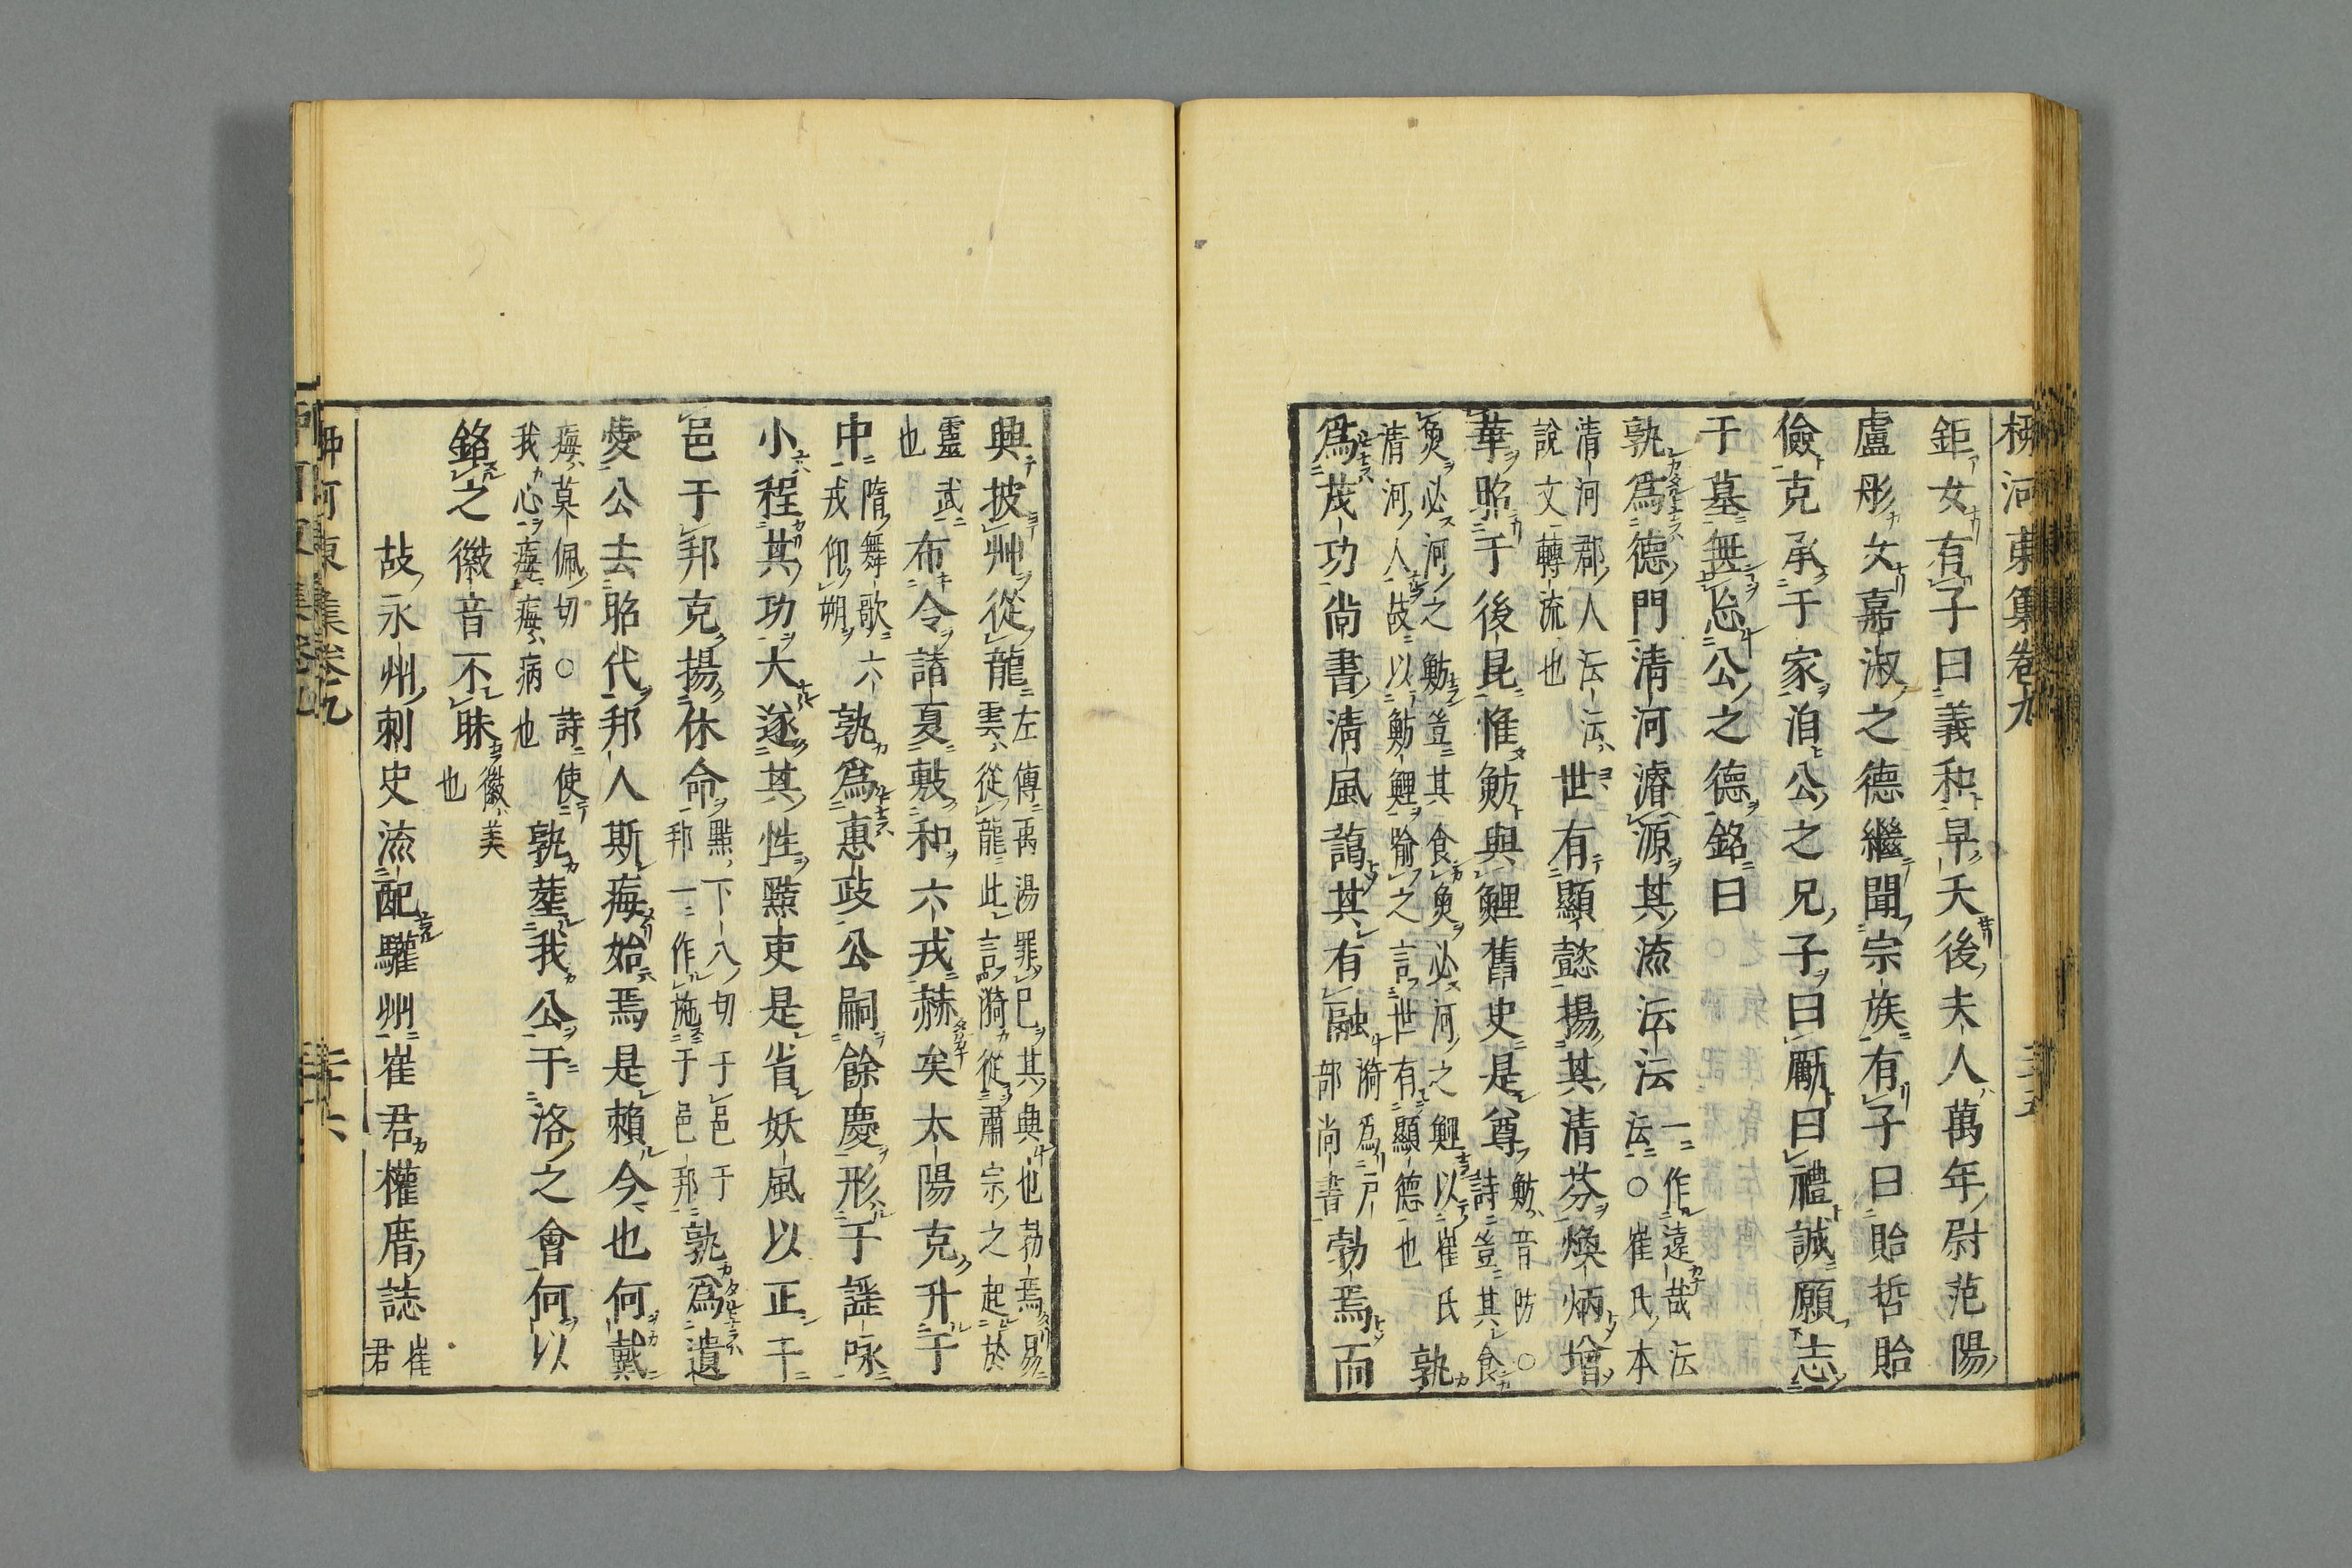 柳河東集卷九
鉅女有子曰義和早夭後夫人萬年尉范陽
盧彤女嘉淑之德繼聞宗族有子曰貽哲貽
儉克承于家洎公之兄子曰勵曰禮誠願志
于墓無忘公之德銘曰
孰爲德門清河濬源其流沄沄一作遠哉沄沄○崔氏本
清河郡人沄沄說文轉流也世有顯懿揚其清芬煥炳增
華昭于後昆惟魴與鯉舊史是尊魴音防○詩豈其食
魚必河之魴豈其食魚必河之鯉以崔氏清河人故以魴鯉喻之言世有顯德也孰
爲茂功尚書清風藹其有融漪爲戸部尚書勃焉而
興披艸從龍左傳禹湯罪已其興也勃焉易雲從龍此言漪從肅宗之起於
靈武也布令諸夏敷和六戎赫矣太陽克升于
中隋舞歌六戎仰朔孰爲惠政公嗣餘慶形于謡咏
小程其功大遂其性黠吏是省妖風以正干
邑于邦克揚休命黠下八切于邑于邦一作施于邑邦孰爲遺
愛公去昭代邦人斯痗始焉是賴今也何戴
痗莫佩切○詩使我心痗痗病也孰葬我公于洛之會何以
銘之徽音不昧徽美也
故永州刺史流配驩州崔君權厝誌崔君
柳河東集卷九